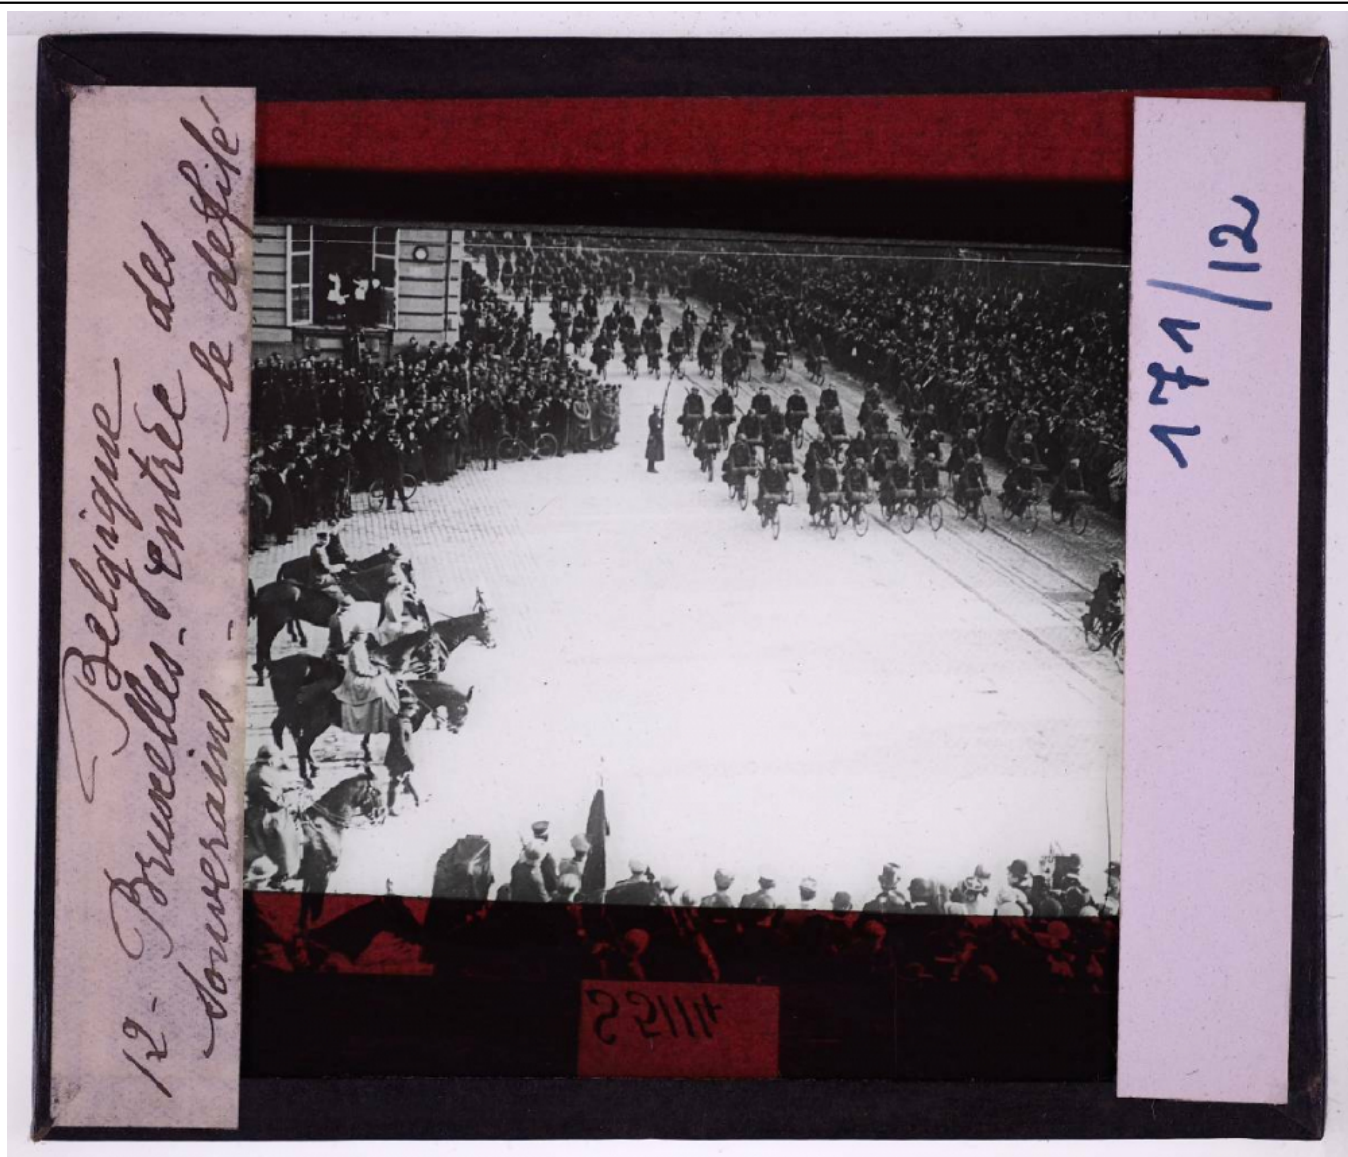 Belgique
12 - Bruxelles - Entrée des
souverains - le défilé
171/12